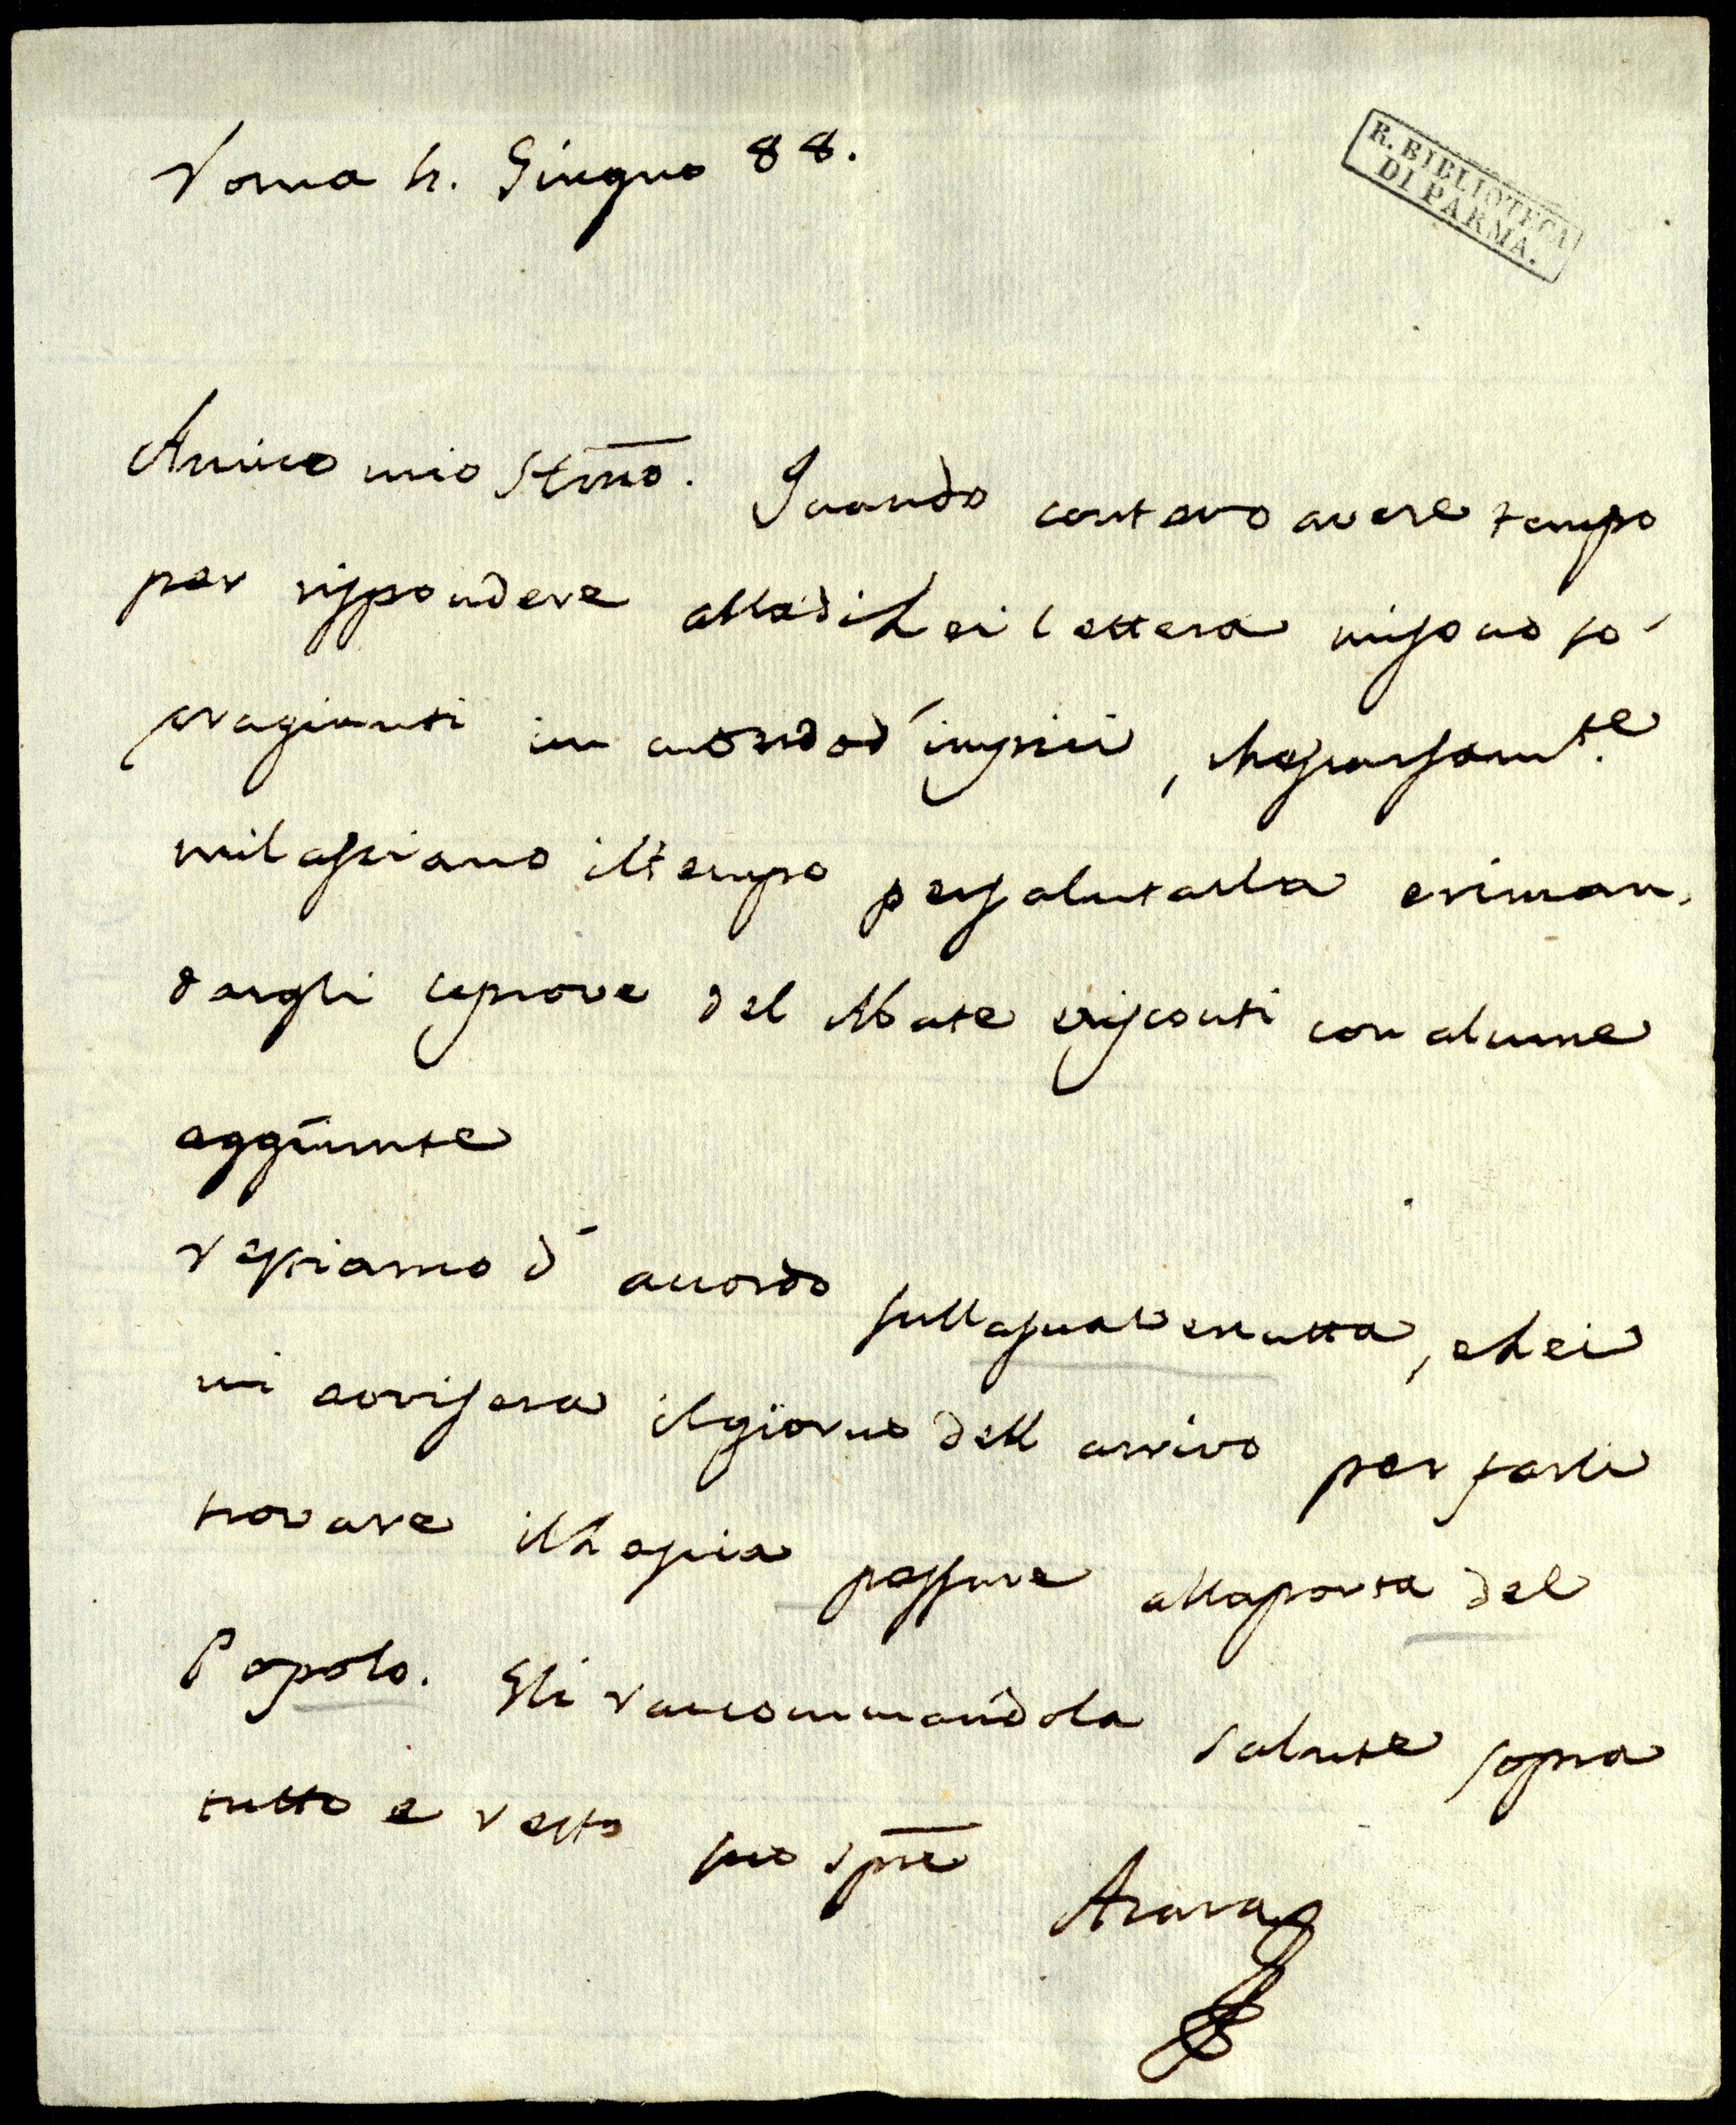 Roma 4. Giugno 88.
R. BIBLIOTECA
DI PARMA.
Amico mio Stimo. Quando contavo avere tempo
per rispondere alla di Lei lettera mi sono so-
pragiunti un mondo d'impicci, che scarsamte.
mi lasciano il tempo per salutarla e riman-
dargli le prove del Abate Visconti con alcune
aggiunte
restiamo d' accordo sulla sua venutta, e Lei
mi avvisera il giorno dell arrivo per farli
trovare il Lascia passare alla porta del
Popolo. Gli raccommando la salute sopra
tutto e resto suo spre
Azara